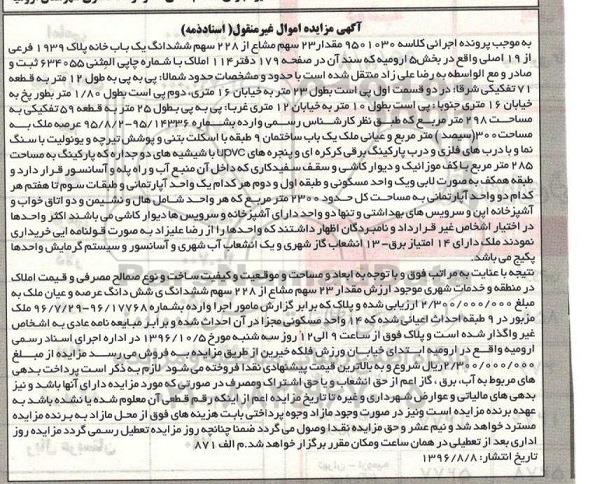 آگهی مزایده اموال غیرمنقول( اسنادذمه)
به موجب پرونده اجرائی کلاسه ۹۵۰۱۰۳۰ مقدار۲۳ سهم مشاع از ۲۲۸ سهم ششدانگ یک باب خانه پلاک ۱۹۳۹ فرعی
از ۱۹ اصلی واقع در بخش۵ ارومیه که سند آن در صفحه ۱۷۹ دفتر۱۱۴ املاک با شماره چاپی المثنی ۶۳۴۰۵۵ ثبت و
صادر و مع الواسطه به رضا علی زاد منتقل شده است با حدود و مشخصات حدود شمالا: پی به پی بطول ۱۲ متر به قطعه
۷۱ تفکیکی شرقا: در دو قسمت اول پی است بطول ۲۳ متر به خیابان ۱۶ متری، دوم پی است بطول ۱/۸۰ متر بطور پخ به
خیابان ۱۶ متری جنوبا : پی است بطول ۱۰ متر به خیابان ۱۲ متری غربا: پی به پی بطول ۲۵ متر به قطعه ۵۹ تفکیکی به
مساحت ۲۹۸ متر مربع که طبق نظر کارشناس رسمی وارده بشماره ۹۵/۰۱۴۳۳۶-۹۵/۸/۲ عرصه ملک به
مساحت۳۰۰(سیصد ) متر مربع و عیانی ملک یک باب ساختمان ۹ طبقه با اسکلت بتنی و پوشش تیرچه و یونولیت با سنگ
نما و با درب های فلزی و درب پارکینگ برقی کرکره ای و پنجره های upvc با شیشه های دو جداره که پارکینگ به مساحت
۲۸۵ متر مربع با کف موزائیک و دیوار کاشی و سقف سفیدکاری که داخل آن منبع آب و راه پله و آسانسور قرار دارد و
طبقه همکف به صورت لابی ویک واحد مسکونی و طبقه اول و دوم هر کدام یک واحد آپارتمانی و طبقات سوم تا هفتم هر
کدام دو واحد آپارتمانی به مساحت کل حدود ۲۳۰۰ متر مربع که هر واحد شامل هال و نشیمن و دو اتاق خواب و
آشپزخانه اپن و سرویس های بهداشتی و تنها دو واحد دارای آشپزخانه و سرویس ها دیوار کاشی می باشند اکثر واحدها
در اختیار اشخاص غیر قرارداد و نامبردگان اظهار داشتند که واحدها را از رضا علیزاد به صورت قولنامه ایی خریداری
نمودند ملک دارای ۱۴ امتیاز برق-۱۳ انشعاب گاز شهری و یک انشعاب آب شهری و آسانسور و سیستم گرمایش واحدها
پکیج می باشد.
نتیجه با عنایت به مراتب فوق و با توجه به ابعاد و مساحت و موقعیت و کیفیت ساخت و نوع مصالح مصرفی و قیمت املاک
در منطقه و خدمات شهری موجود ارزش مقدار ۲۳ سهم مشاع از ۲۲۸ سهم ششدانگ ی شش دانگ عرصه و عیان ملک به
مبلغ ۲/۳۰۰/۰۰۰/۰۰۰ ارزیابی شده و پلاک که برابر گزارش مامور اجرا وارده بشماره۹۶/۰۱۷۷۶۸-۹۶/۷/۲۹ ملک
مزبور در ۹ طبقه احداث اعیانی شده که ۱۲ واحد مسکونی مجزا در آن احداث شده و برابر مبایعه نامه عادی به اشخاص
غیر واگذار شده است و پلاک فوق از ساعت ۹ الی۱۲ روز سه شنبه مورخ ۱۳۹۶/۱۰/۵ در اداره اجرای اسناد رسمی
ارومیه واقع در ارومیه ابتدای خیابان ورزش فلکه خیرین از طریق مزایده به فروش می رسد مزایده از مبلغ
۲/۳۰۰/۰۰۰/۰۰۰ریال شروع و به بالاترین قیمت پیشنهادی نقدا فروخته می شود لازم به ذکر است پرداخت بدهی
های مربوط به آب، برق ، گاز اعم از حق انشعاب و یا حق اشتراک و مصرف در صورتی که مورد مزایده دارای آنها باشد و نیز
بدهی های مالیاتی و عوارض شهرداری و غیره تا تاریخ مزایده اعم از اینکه رقم قطعی آن معلوم شده یا نشده باشد به
عهده برنده مزایده است ونیز در صورت وجود مازاد وجوه پرداختی بابت هزینه های فوق از محل مازاد به برنده مزایده
مسترد خواهد شد و نیم عشر و حق مزایده نقدا وصول می گردد ضمنا چنانچه روز مزایده تعطیل رسمی گردد مزایده روز
اداری بعد از تعطیلی در همان ساعت ومکان مقرر برگزار خواهد شد.م الف ۸۷۱
تاریخ انتشار: ۱۳۹۶/۸/۸